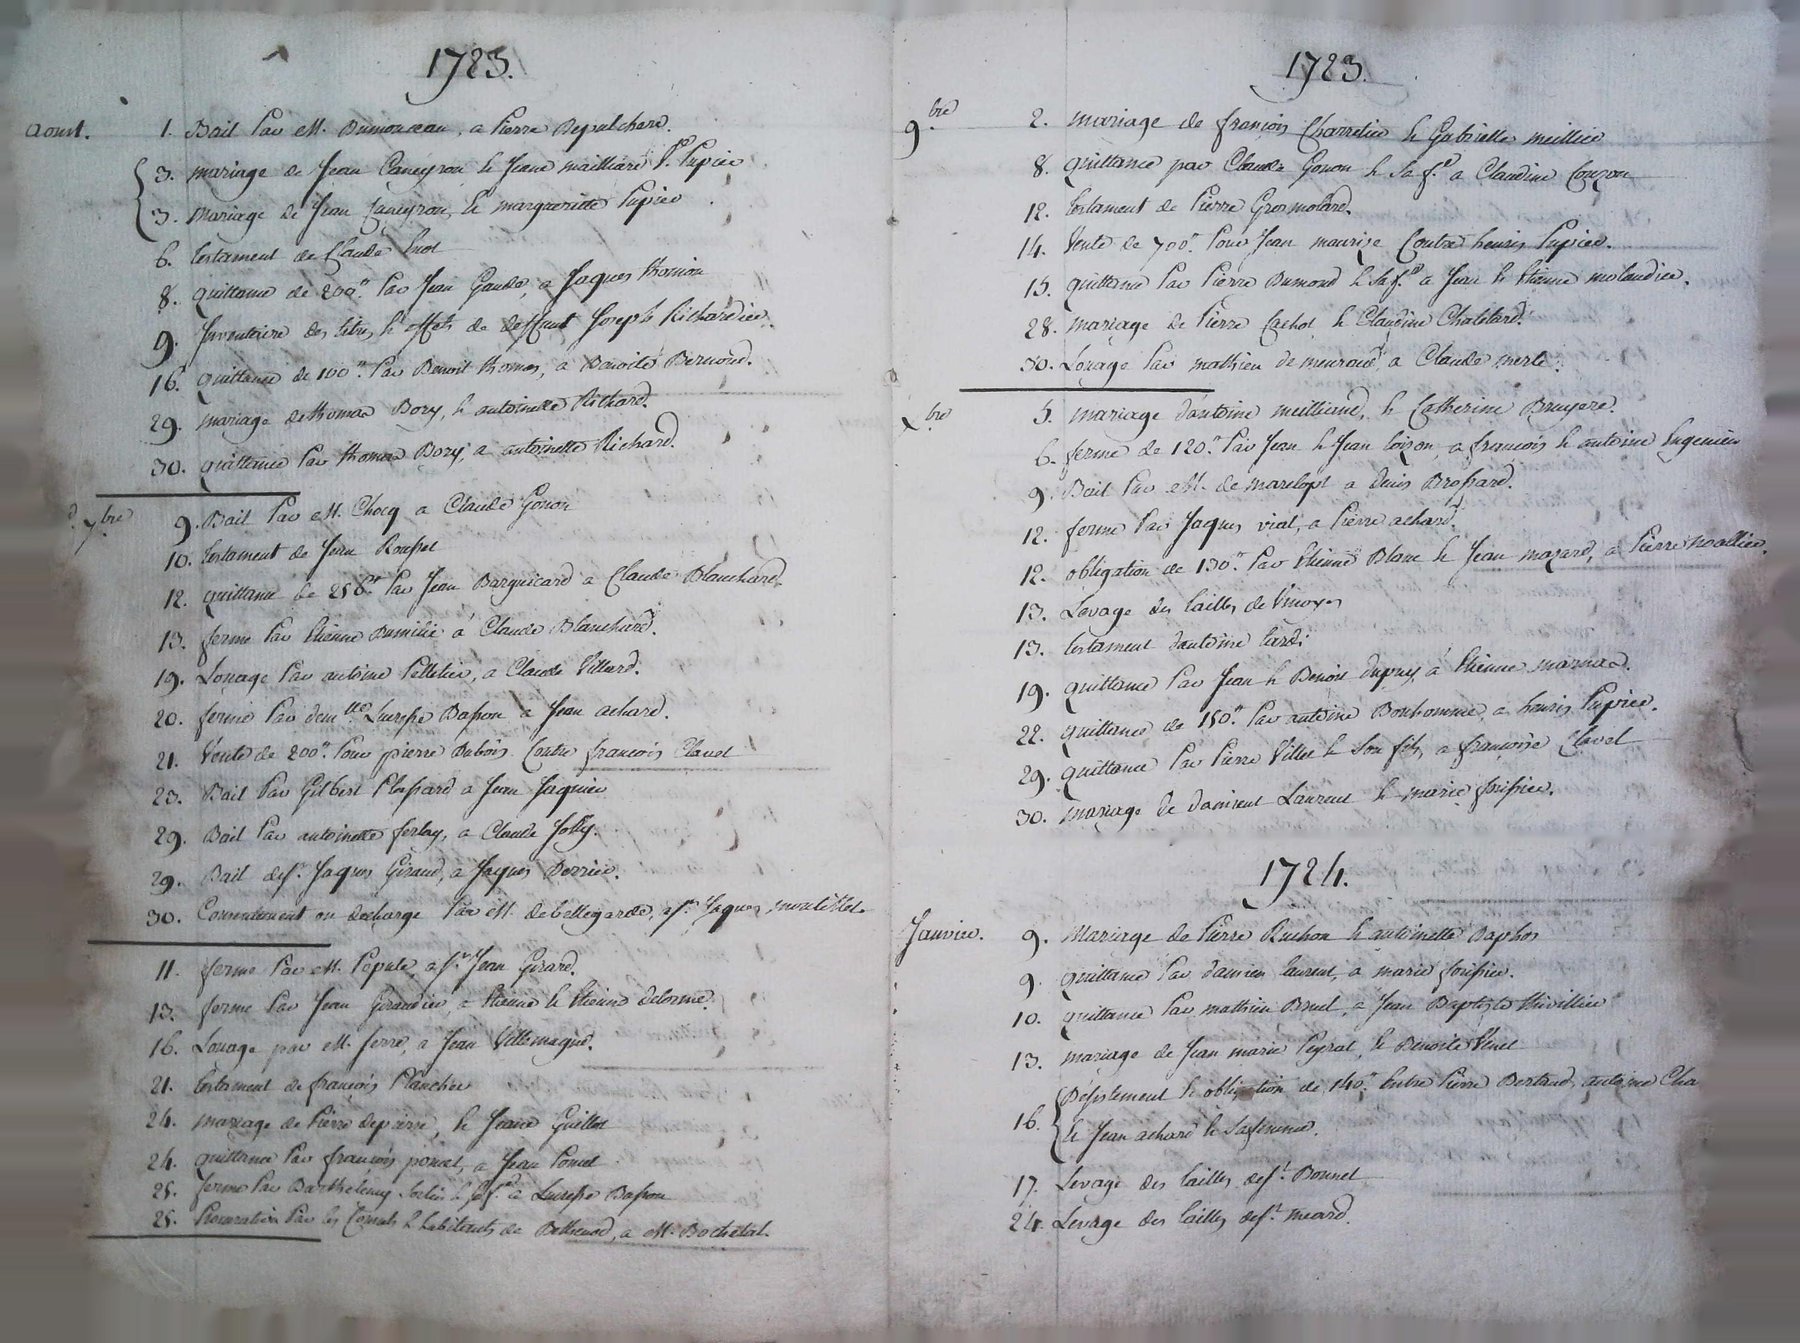 1723.
aoust.
1. Bail Par M. Dumonceau, a Pierre Depulchere.
3. mariage de Jean Caneyron, & Jeane mailliard Ve. Pupier
3. mariage de Jean Caneyron, & marguerite Pupier
6. testament de Claude
8. quittance de 200" Par Jean Gaude, a Jaques thomon
9. Inventaire des titres & effets de deffunt Joseph Richardier.
16. quittance de 100" Par Benoit thomas, a Benoite Bernond.
29. mariage de thomas Bory, & antoinette Richard.
30. quittance Par thomas Bory, a antoinette Richard.
7.bre
9. Bail Par M. Chocq a Claude Gonon
10. testament de Jean Rousset
12. quittance de 256" Par Jean Barguicard a Claude Blanchard.
13. ferme Par Etienne Dumilie a Claude Blanchard.
19. Louage Par antoine Pelletier, a Claude Villard.
20. ferme Par dem.lle Lucresse Basson a Jean achard.
21. Vente de 200" Pour pierre Dubois Contre francois Clavel
23. Bail Par Gilbert Plassard a Jean Jaquier
29. Bail Par antoinette ferlay, a Claude Jolly.
29. Bail de Sr. Jaques Giraud, a Jaques Perrier.
30. Consentement ou decharge Par M. de bellegarde, a Sr. Jaques moutillet.
11. ferme Par M. Pepule, a Sr. Jean Girard.
13. ferme Par Jean Grandier, a Etienne & Etienne delorme.
16. Louage par M. ferre, a Jean Villemagne.
21. testament de francois Plancher
24. mariage de Pierre depierre, & Jeane Guillot
24. quittance Par francois poncet, a Jean Poncet
25. ferme Par Barthelemy & Sa fe. a Lucresse Basson
25. Procuration Par les Consuls & habitants de Bethenod, a M. Bochetal.
1723.
9.bre
2. mariage de francois Charretier & Gabrielle meillier
8. quittance par Claude Gonon & Sa fe. a Claudine Conzon
12. testament de Pierre Grosmolard.
14. Vente de 700" Pour Jean maurize Contre henris Pupier.
15. quittance Par Pierre Dumond & Sa fe. a Jean & Etienne molaudier.
28. mariage de Pierre Cachot & Claudine Chatelard.
30. Louage Par mathieu de meuraud, a Claude merle.
X.bre
5. mariage d'antoine meilliand, & Catherine Bruyere.
6. ferme de 120" Par Jean & Jean Loizon, a francois & antoine Ingenieu
9. Bail Par M. de marclopt a denis Brossard.
12. ferme Par Jaques vial, a Pierre achard.
12. obligation de 130" Par Etienne Blanc & Jean mazard, a Pierre noallier.
13. Levage des tailles de Vinoyes
13. testament d'antoine tardi
19. quittance Par Jean & Benoit dupuy a Etienne marnas.
22. quittance de 150" Par antoine Bonhomme, a henris Pupier.
29. quittance Par Pierre Villes & Son fils, a francoise Clavel
30. mariage de damient Laurent & marie frissier.
1724.
Janvier.
9. Mariage de Pierre Ruchon & antoinette Daphos
9. quittance Par damien laurent, a marie foissier.
10. quittance Par mathieu Breul, a Jean Baptiste thivillier
13. mariage de Jean marie Peyrat, & Benoite Venet
16. Desistement & obligation de 140" Entre Pierre Bertaud, antoine Cha
& Jean achard & Sa femme.
17. Levage des tailles de St. Bonnet
24. Levage des tailles de St. meard.